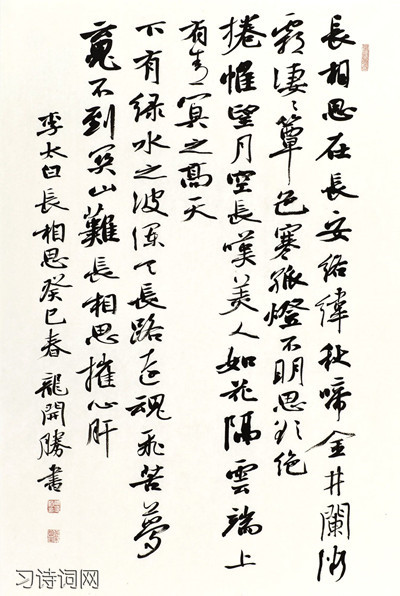 長相思在長安絡緯秋啼金井闌微
霜淒〻簟色寒孤燈不明思欲絕
捲帷望月空長嘆美人如花隔雲端上
有青冥之高天
下有綠水之波瀾天長路遠魂飛苦夢
魂不到關山難長相思摧心肝
李太白長相思癸巳春龍開勝書
习诗词网